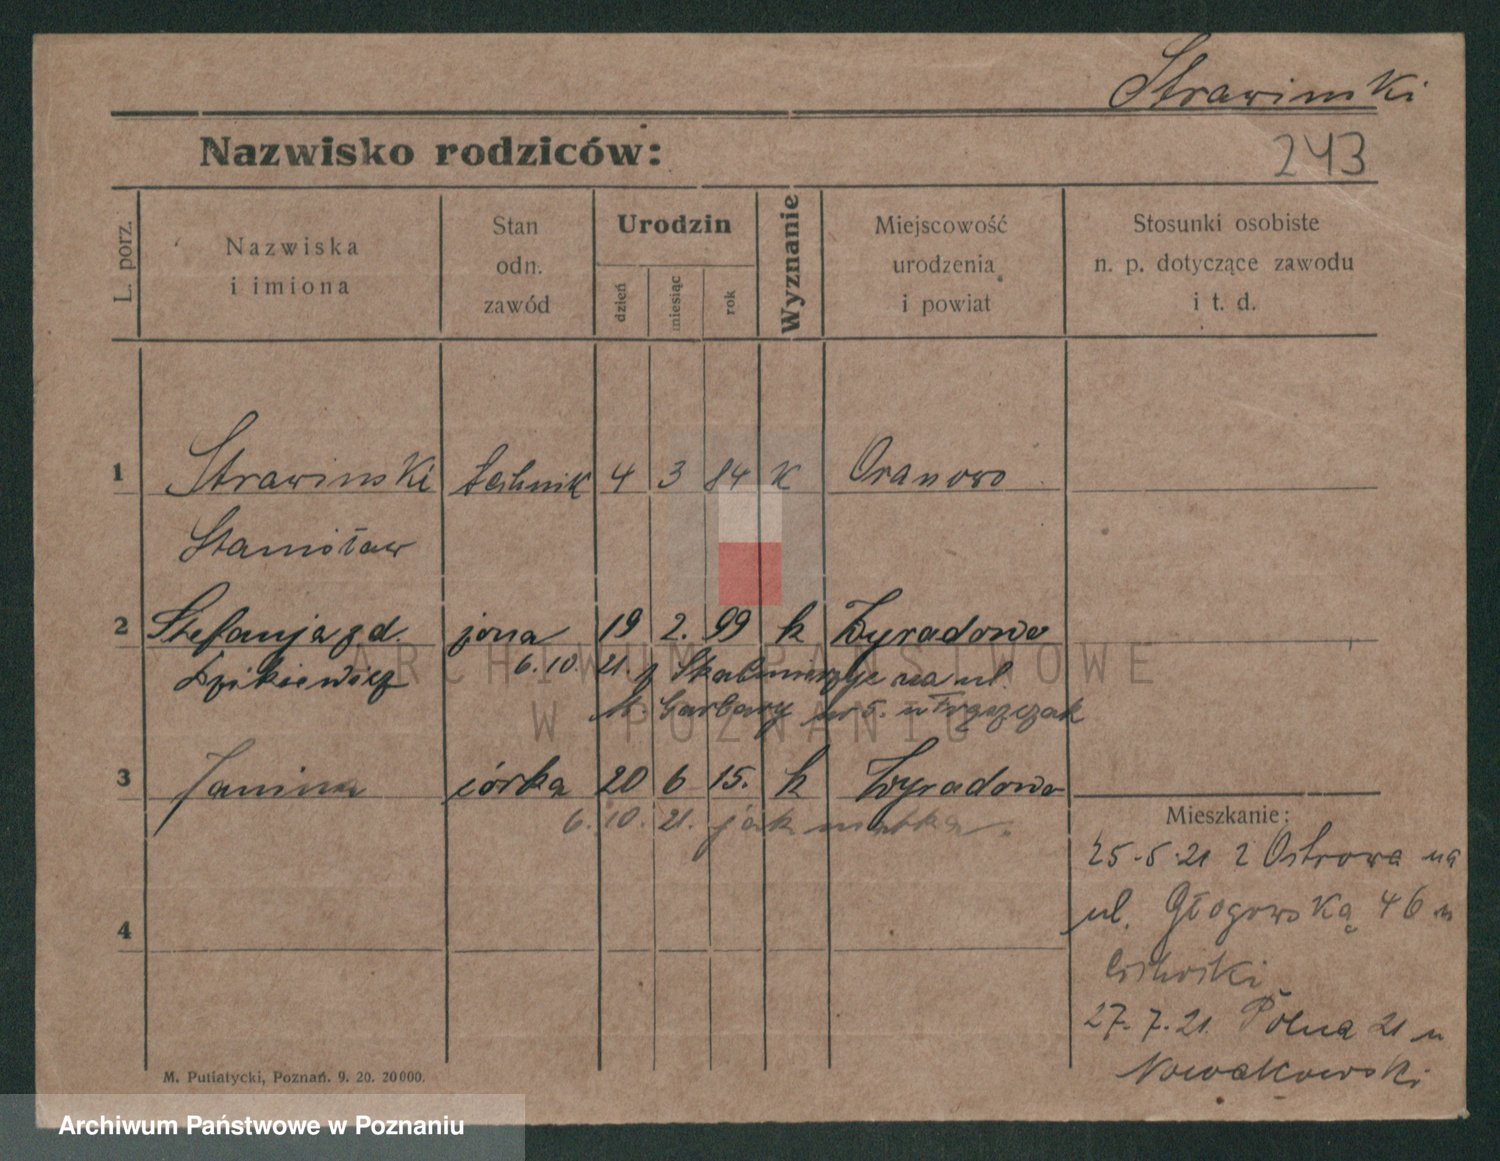 Strawinski
243
Nazwisko rodziców:
L. porz.
Nazwiska
i imiona
Stan
odn.
zawód
Urodzin
dzień
miesiąc
rok
Wyznanie
Miejscowość
urodzenia
i powiat
Stosunki osobiste
n. p. dotyczące zawodu
i t. d.
1 Strawinski technik 4 3 84 K Oranowo
Stanisław
2 Stefanja z d. żona 19 2. 99 k Żyradowo
6. 10. 21. z Skalmierzyc na ul.
M. Garbary nr 5. u
3 Janina córka 20 6 15. k Żyradowo
6. 10. 21. jak matka.
Mieszkanie:
25-5-21 z Ostrowa na
ul. Głogowską 46 u
27-7-21. Polna 21 u
Nowakowski
4
M. Putiatycki, Poznań. 9. 20. 20000.
ARCHIWUM PAŃSTWOWE
W POZNANIU
Archiwum Państwowe w Poznaniu